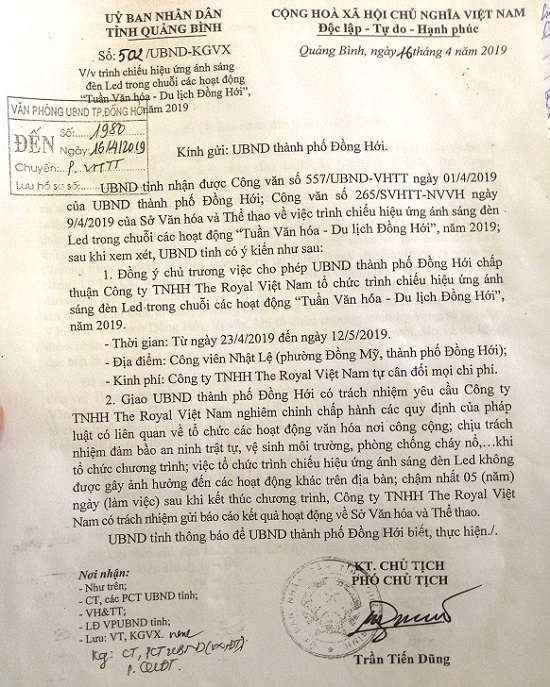 UỶ BAN NHÂN DÂN
TỈNH QUẢNG BÌNH
CỘNG HOÀ XÃ HỘI CHỦ NGHĨA VIỆT NAM
Độc lập - Tự do - Hạnh phúc
Số: 502/UBND-KGVX
Quảng Bình, ngày 16 tháng 4 năm 2019
V/v trình chiếu hiệu ứng ánh sáng
đèn Led trong chuỗi các hoạt động
“Tuần Văn hóa - Du lịch Đồng Hới”,
năm 2019
VĂN PHÒNG UBND TP.ĐỒNG HỚI
ĐẾN
Số: 1980
Ngày: 16/4/2019
Chuyển: P. VHTT
Lưu hồ sơ số:
Kính gửi: UBND thành phố Đồng Hới.
UBND tỉnh nhận được Công văn số 557/UBND-VHTT ngày 01/4/2019
của UBND thành phố Đồng Hới; Công văn số 265/SVHTT-NVVH ngày
9/4/2019 của Sở Văn hóa và Thể thao về việc trình chiếu hiệu ứng ánh sáng đèn
Led trong chuỗi các hoạt động “Tuần Văn hóa - Du lịch Đồng Hới”, năm 2019;
sau khi xem xét, UBND tỉnh có ý kiến như sau:
1. Đồng ý chủ trương việc cho phép UBND thành phố Đồng Hới chấp
thuận Công ty TNHH The Royal Việt Nam tổ chức trình chiếu hiệu ứng ánh
sáng đèn Led trong chuỗi các hoạt động “Tuần Văn hóa - Du lịch Đồng Hới”,
năm 2019.
- Thời gian: Từ ngày 23/4/2019 đến ngày 12/5/2019.
- Địa điểm: Công viên Nhật Lệ (phường Đồng Mỹ, thành phố Đồng Hới);
- Kinh phí: Công ty TNHH The Royal Việt Nam tự cân đối mọi chi phí.
2. Giao UBND thành phố Đồng Hới có trách nhiệm yêu cầu Công ty
TNHH The Royal Việt Nam nghiêm chỉnh chấp hành các quy định của pháp
luật có liên quan về tổ chức các hoạt động văn hóa nơi công cộng; chịu trách
nhiệm đảm bảo an ninh trật tự, vệ sinh môi trường, phòng chống cháy nổ,…khi
tổ chức chương trình; việc tổ chức trình chiếu hiệu ứng ánh sáng đèn Led không
được gây ảnh hưởng đến các hoạt động khác trên địa bàn; chậm nhất 05 (năm)
ngày (làm việc) sau khi kết thúc chương trình, Công ty TNHH The Royal Việt
Nam có trách nhiệm gửi báo cáo kết quả hoạt động về Sở Văn hóa và Thể thao.
UBND tỉnh thông báo để UBND thành phố Đồng Hới biết, thực hiện./.
Nơi nhận:
- Như trên;
- CT, các PCT UBND tỉnh;
- VH&TT;
- LĐ VPUBND tỉnh;
- Lưu: VT, KGVX.
Kg: CT, PCT UBND (VXĐT)
P. QLĐT.
KT. CHỦ TỊCH
PHÓ CHỦ TỊCH
Trần Tiến Dũng